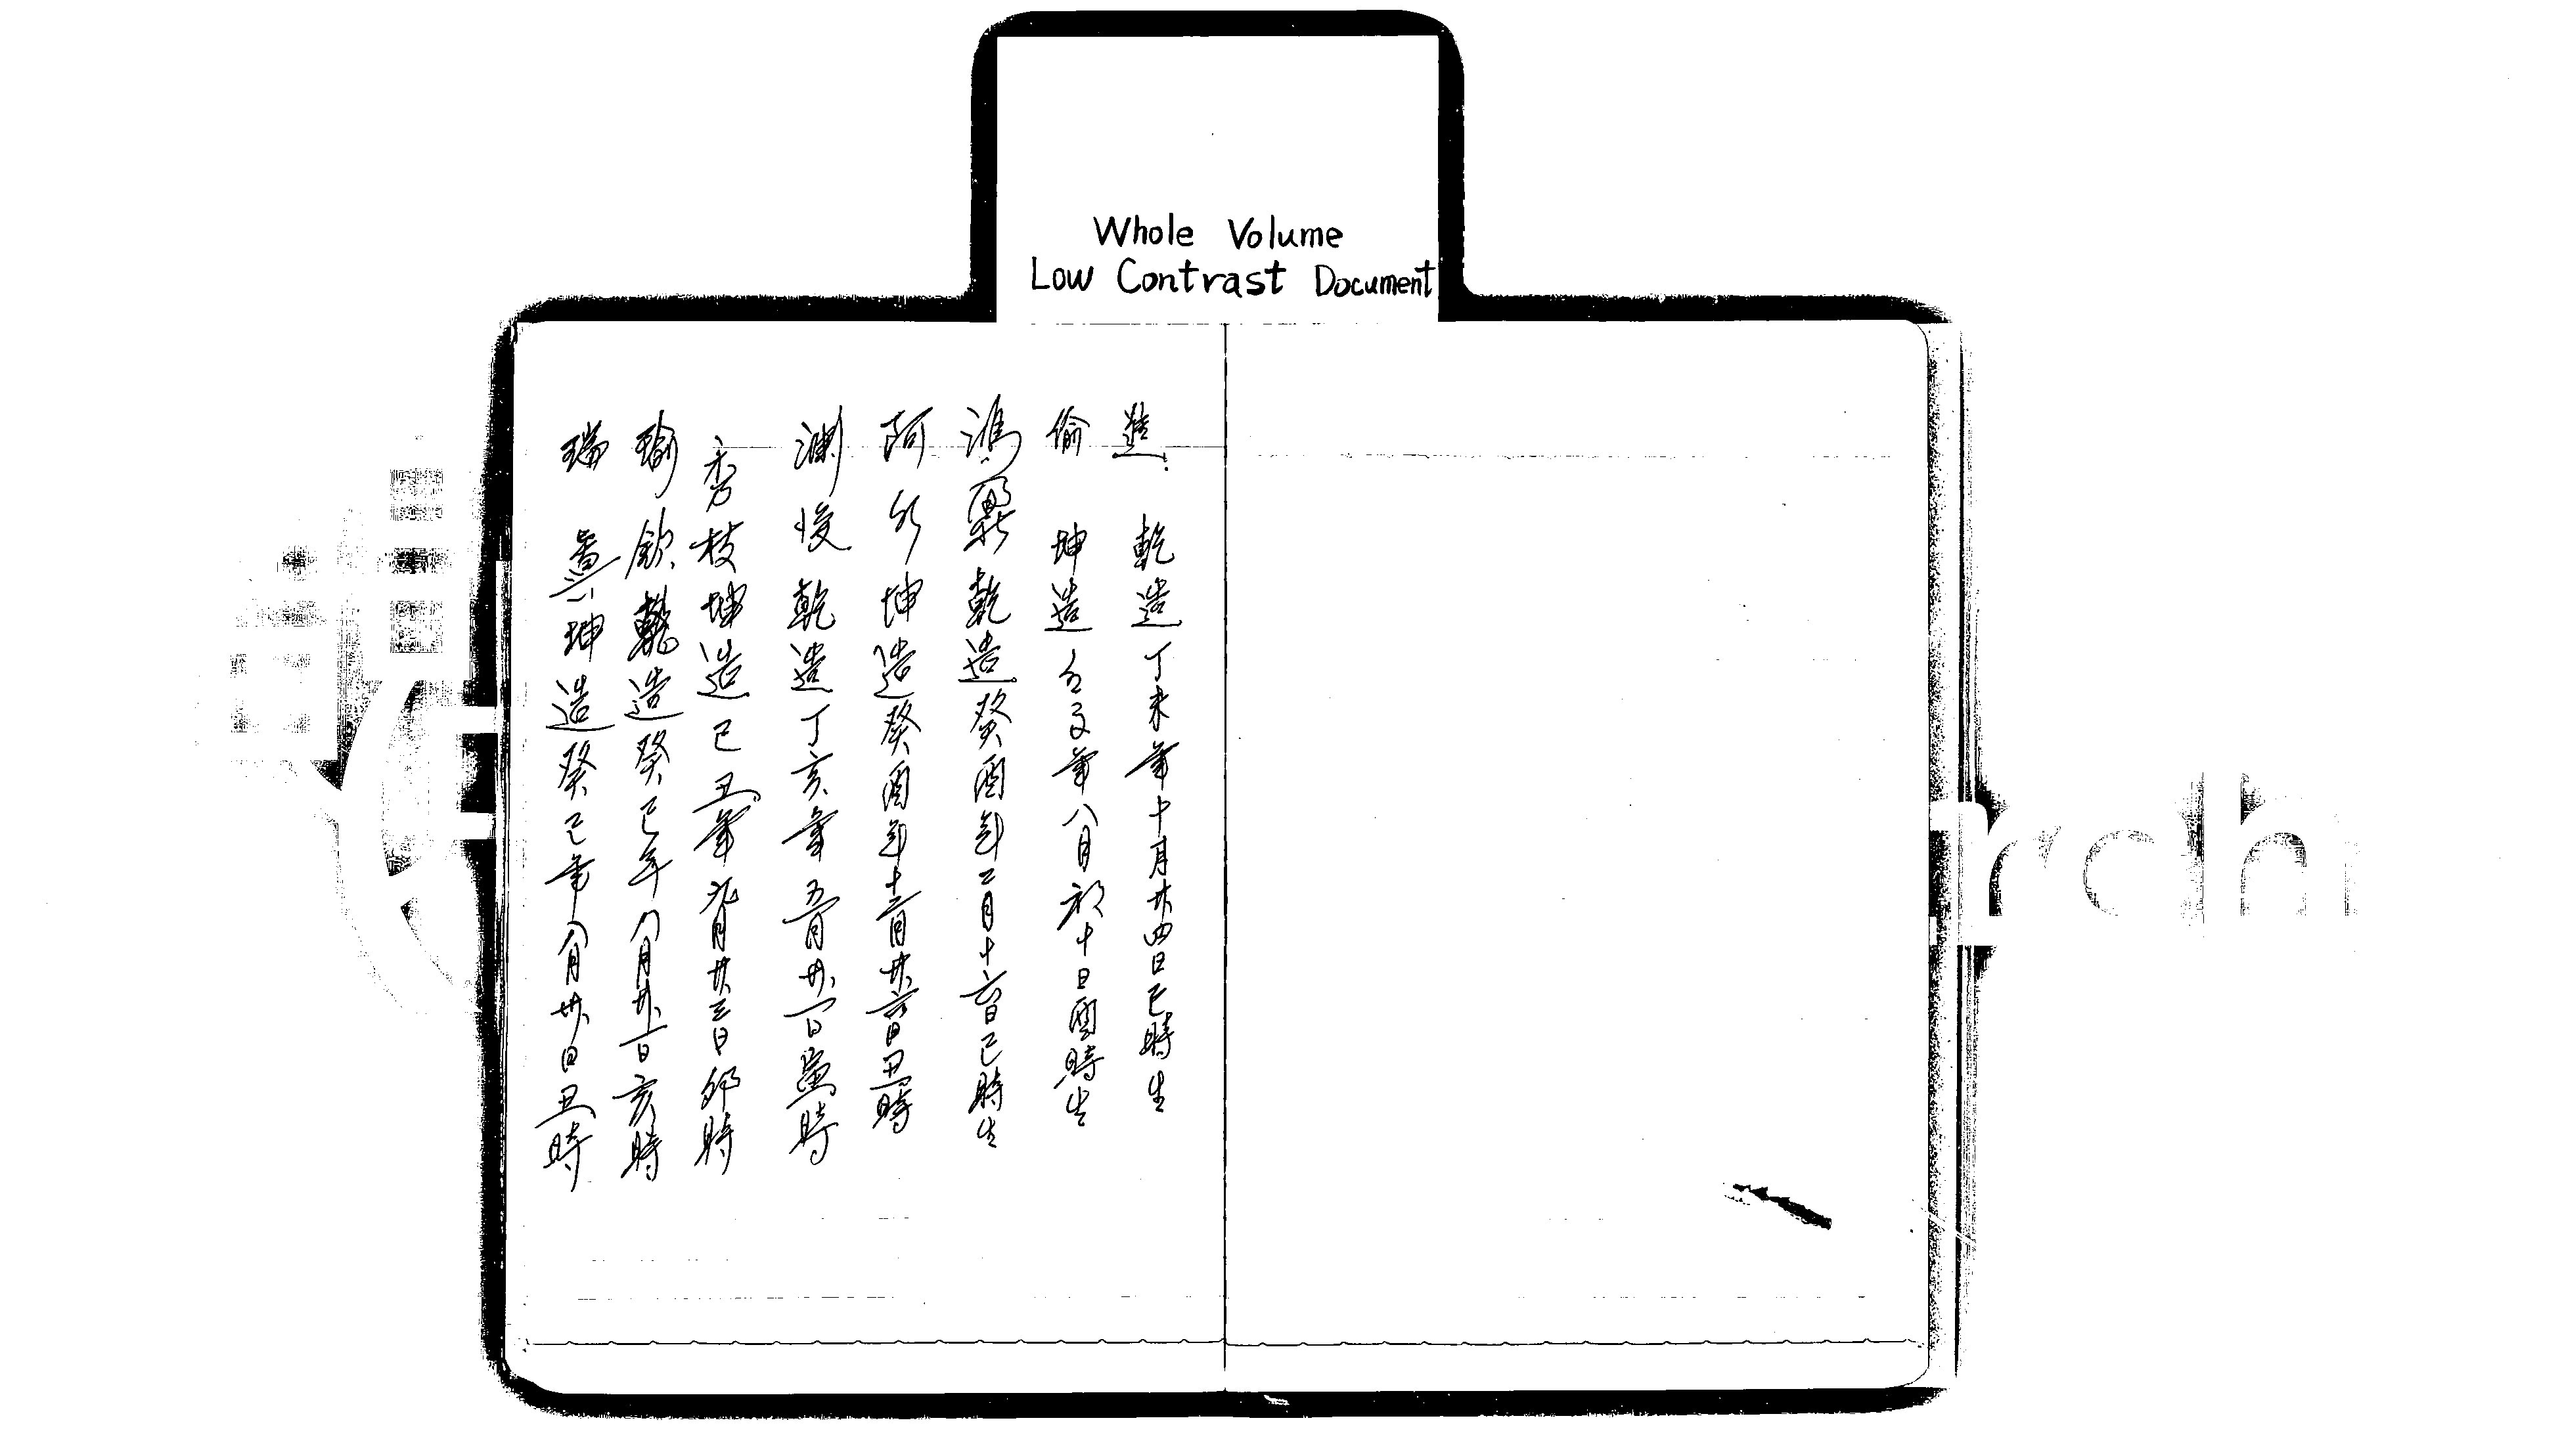 Whole Volume
Low Contrast Document
乾造丁未年十月廿四日巳時生
偷 坤造年八月初十日酉時生
鴻 乾造癸酉年二月十六日巳時生
阿 坤造癸酉年十二月廿六日丑時
渊俊乾造丁亥年五月廿一日寅時
秀枝坤造己丑年元月廿三日卯時
瑜欽乾造癸巳年八月廿一日亥時
瑞 坤造癸巳年八月廿日丑時
rch